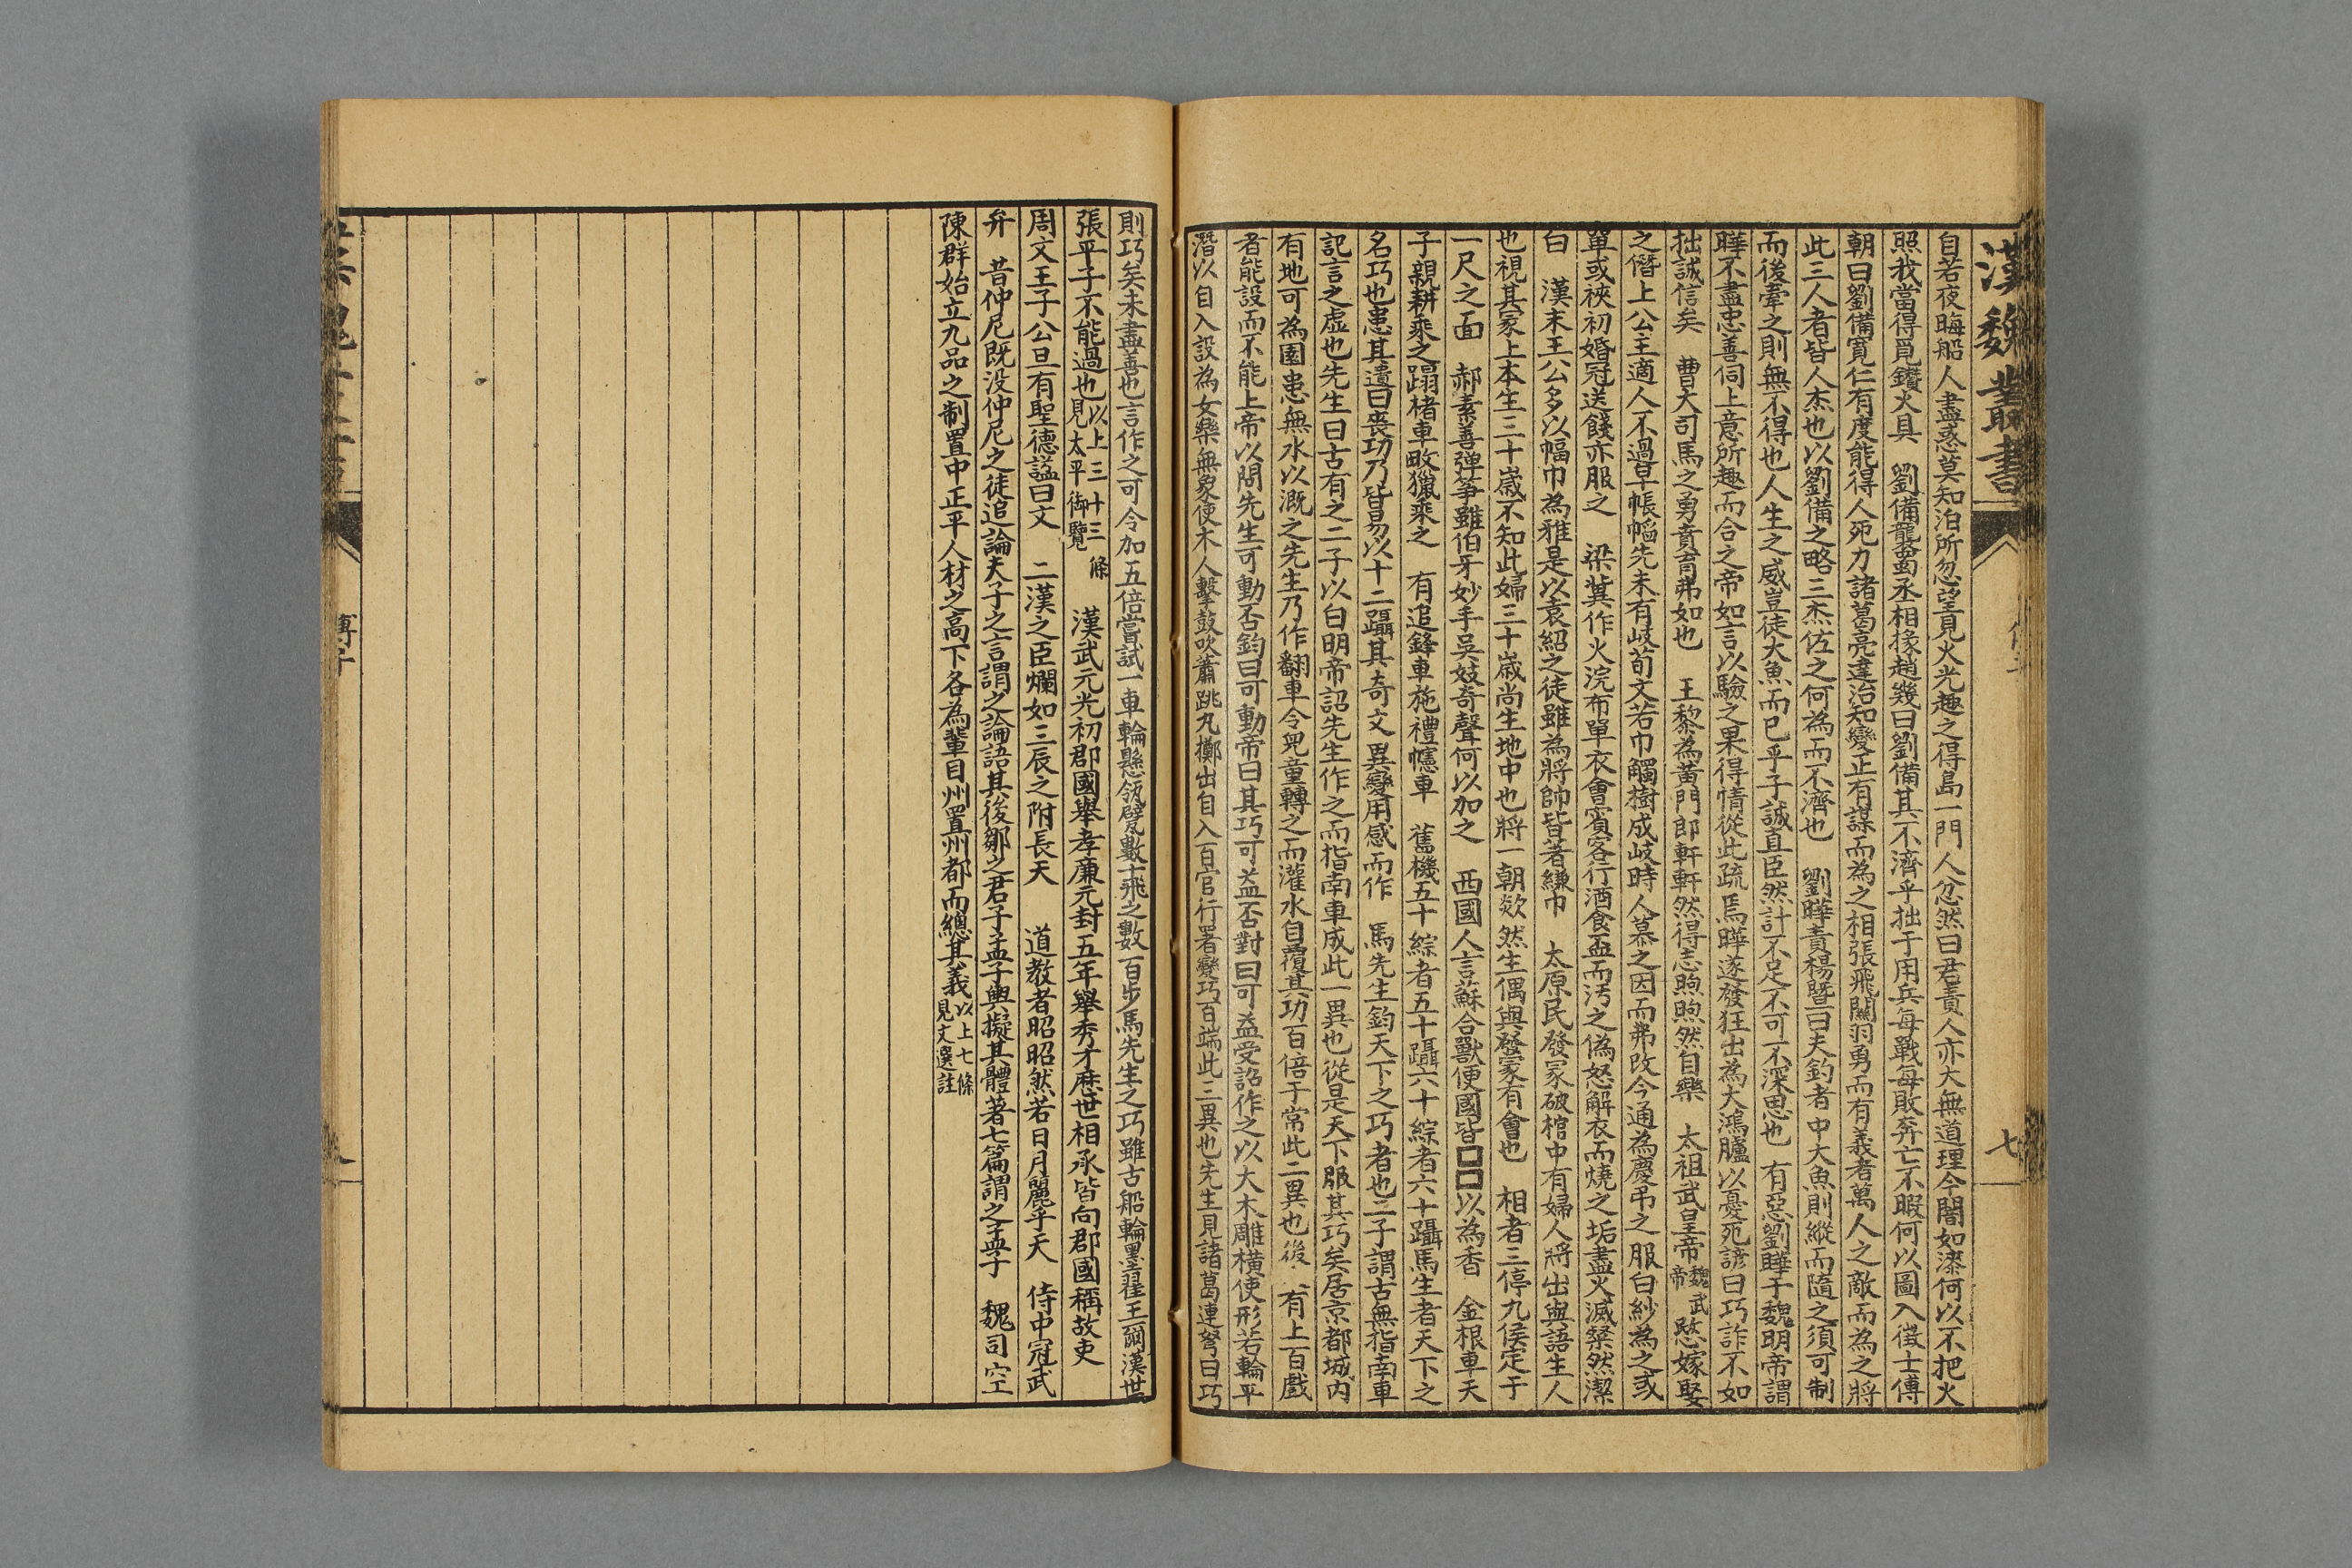 漢魏叢書
七
自若夜晦船人盡惑莫知泊所忽望見火光趣之得島一門人忿然曰君責人亦大無道理今闇如漆何以不把火
照我當得覓鑽火具　劉備襲蜀丞相掾趙戩曰劉備其不濟乎拙于用兵每戰每敗奔亡不暇何以圖入徵士傅
朝曰劉備寬仁有度能得人死力諸葛亮達治知變正有謀而為之相張飛關羽勇而有義者萬人之敵而為之將
此三人者皆人杰也以劉備之略三杰佐之何為而不濟也　劉曄責楊暨曰夫釣者中大魚則縱而隨之須可制
而後牽之則無不得也人生之威豈徒大魚而已乎子誠直臣然計不足不可不深思也　有惡劉曄于魏明帝謂
曄不盡忠善伺上意所趣而合之帝如言以驗之果得情從此疏焉曄遂發狂出為大鴻臚以憂死諺曰巧詐不如
拙誠信矣　曹大司馬之勇賁育弗如也　王黎為黃門郎軒軒然得志煦煦然自樂　太祖武皇帝魏武帝愍嫁娶
之僭上公主適人不過皁帳幍先未有岐荀文若巾觸樹成岐時人慕之因而弗改今通為慶弔之服白紗為之或
單或裌初婚冠送餞亦服之　梁冀作火浣布單衣會賓客行酒食盃而污之偽怒解衣而燒之垢盡火滅粲然潔
白　漢末王公多以幅巾為雅是以袁紹之徒雖為將帥皆著縑巾　太原民發冢破棺中有婦人將出與語生人
也視其冢上本生三十歲不知此婦三十歲尚生地中也將一朝欻然生偶與發冢有會也　相者三停九侯定于
一尺之面　郝素善弹筝雖伯牙妙手吳妓奇聲何以加之　西國人言蘇合獸便國皆□□以為香　金根車天
子親耕乘之蹋楮車畋獵乘之　有追鋒車施禮幰車　舊機五十綜者五十躡六十綜者六十躡馬生者天下之
名巧也患其遺曰喪功乃皆易以十二躡其奇文異變用感而作　馬先生鈞天下之巧者也二子謂古無指南車
記言之虛也先生曰古有之二子以白明帝詔先生作之而指南車成此一異也從是天下服其巧矣居京都城内
有地可為園患無水以溉之先生乃作翻車令兒童轉之而灌水自覆其功百倍于常此二異也後有上百戲
者能設而不能上帝以問先生可動否鈞曰可動帝曰其巧可益否對曰可益受詔作之以大木雕橫使形若輪平
潛以自入設為女樂無象使木人擊鼓吹簫跳丸擲出自入百官行署變巧百端此三異也先生見諸葛連弩曰巧
則巧矣未盡善也言作之可令加五倍嘗試一車輪懸瓴甓數十飛之數百步馬先生之巧雖古船輪墨翟王爾漢世
張平子不能過也以上三十三條見太平御覽　漢武元光初郡國舉孝廉元封五年舉秀才歷世相承皆向郡國稱故吏
周文王子公旦有聖德謚曰文　二漢之臣爛如三辰之附長天　道教者昭昭然若日月麗乎天　侍中冠武
弁　昔仲尼既没仲尼之徒追論夫子之言謂之論語其後鄒之君子孟子輿擬其體著七篇謂之孟子　魏司空
陳群始立九品之制置中正平人材之高下各為輩目州置州都而總其義以上七條見文選註
傅子